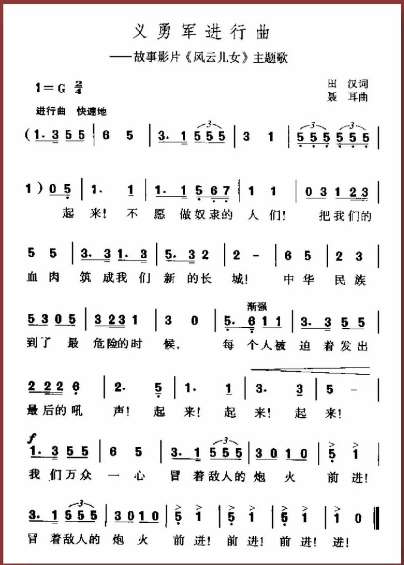 义勇军进行曲
——故事影片《风云儿女》主题歌
1=G 2/4
田 汉词
聂 耳曲
进行曲 快速地
(1. 3 5 5 | 6 5 | 3. 1 5 5 5 | 3 1 | 5 5 5 5 5 5 |
1) 0 5 | 1. 1 | 1. 1 5 6 7 | 1 1 | 0 3 1 2 3 |
起来! 不 愿 做奴隶的 人们! 把我们的
5 5 | 3. 3 1. 3 | 5. 3 2 | 2 - | 6 5 | 2 3
血肉 筑 成我们 新的长 城! 中华 民族
5 3 0 5 | 3 2 3 1 | 3 0 | 5. 6 1 1 | 3. 3 5 5 |
渐强
到了 最 危险的时 候, 每 个人被 迫着发出
2 2 2 6 | 2. 5 | 1. 1 | 3. 3 | 5 -
最后的吼 声! 起来! 起来! 起来!
f
1. 3 5 5 | 6 5 | 3. 1 5 5 5 | 3 0 1 0 | 5 1
我们万众 一心 冒着敌人的 炮火 前进!
3. 1 5 5 5 | 3 0 1 0 | 5 1 | 5 1 | 5 1 | 1 0
冒着敌人的 炮火 前进! 前进! 前进! 进!